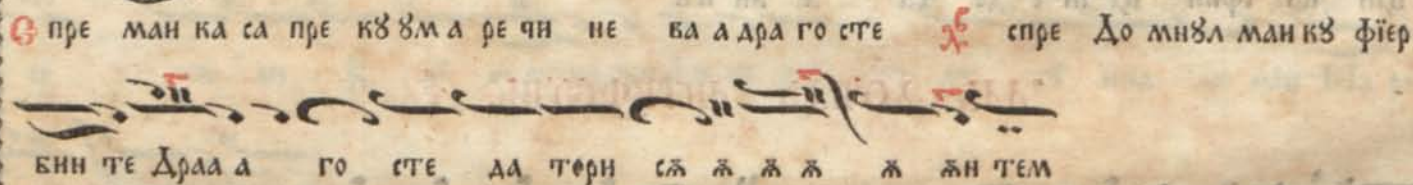 Спре ман ка са пре кꙋ ꙋм а ре чи не ва а дра го сте спре До мнꙋл ман кꙋ фїер
бин те Драа а го сте да тори сѫ ѫ ѫ ѫ ѫ ѫн тем